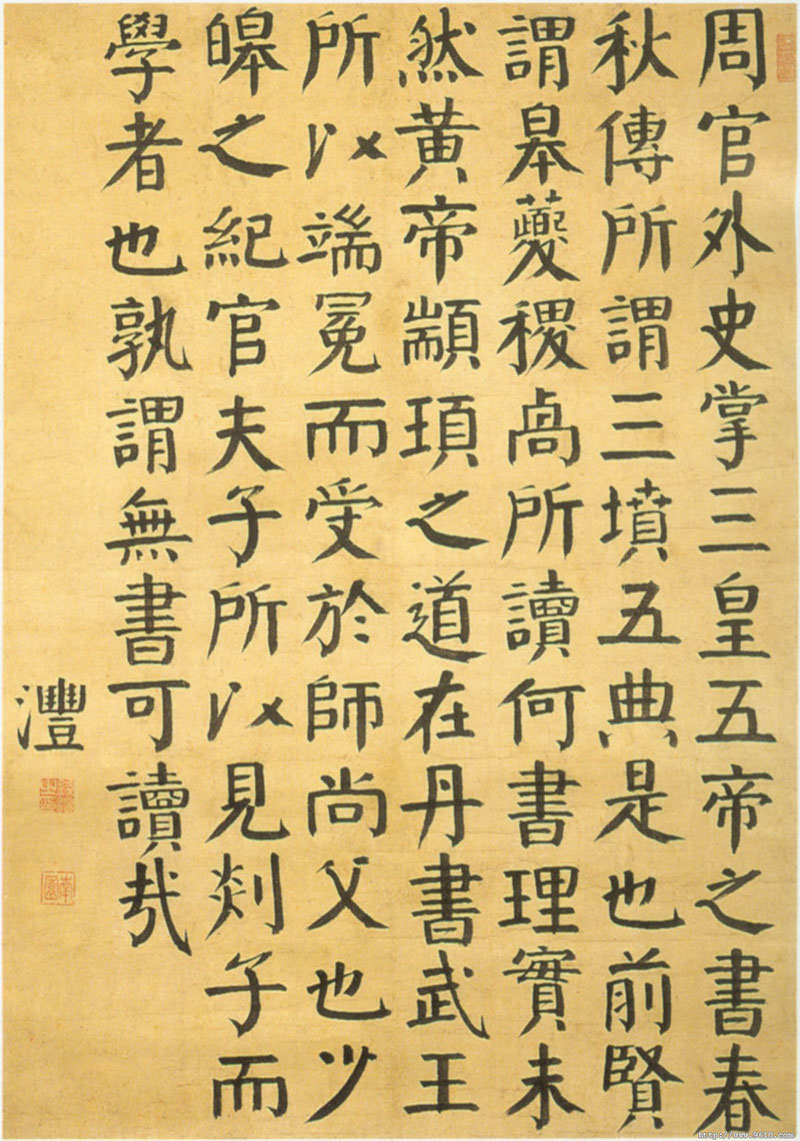 周官外史掌三皇五帝之書春
秋傳所謂三墳五典是也前賢
謂皋夔稷卨所讀何書理實未
然黃帝顓頊之道在丹書武王
所以端冕而受於師尚父也少
皞之紀官夫子所以見剡子而
學者也孰謂無書可讀哉
灃
http://www.9610.com